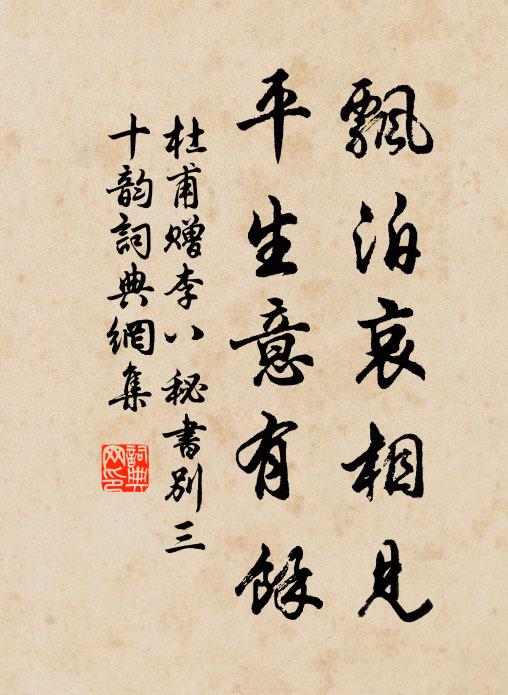 飄泊哀相見
平生意有餘
杜甫赠李八秘書别三
十韵詞典網集
詞典
网印